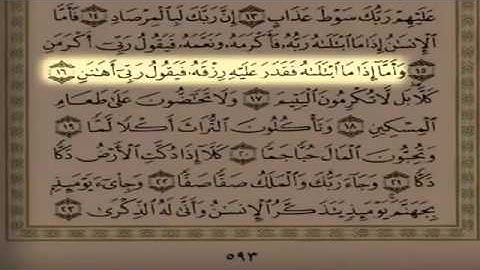 عَلَيْهِمْ رَبُّكَ سَوْطَ عَذَابٍ ١٣ إِنَّ رَبَّكَ لَبِٱلْمِرْصَادِ ١٤ فَأَمَّا
ٱلْإِنسَٰنُ إِذَا مَا ٱبْتَلَىٰهُ رَبُّهُۥ فَأَكْرَمَهُۥ وَنَعَّمَهُۥ فَيَقُولُ رَبِّىٓ أَكْرَمَنِ
١٥ وَأَمَّآ إِذَا مَا ٱبْتَلَىٰهُ فَقَدَرَ عَلَيْهِ رِزْقَهُۥ فَيَقُولُ رَبِّىٓ أَهَٰنَنِ ١٦
كَلَّا بَل لَّا تُكْرِمُونَ ٱلْيَتِيمَ ١٧ وَلَا تَحَٰٓضُّونَ عَلَىٰ طَعَامِ
ٱلْمِسْكِينِ ١٨ وَتَأْكُلُونَ ٱلتُّرَاثَ أَكْلًا لَّمًّا ١٩
وَتُحِبُّونَ ٱلْمَالَ حُبًّا جَمًّا ٢٠ كَلَّآ إِذَا دُكَّتِ ٱلْأَرْضُ دَكًّا
دَكًّا ٢١ وَجَآءَ رَبُّكَ وَٱلْمَلَكُ صَفًّا صَفًّا ٢٢ وَجِا۟ىٓءَ يَوْمَئِذٍۭ
بِجَهَنَّمَ يَوْمَئِذٍ يَتَذَكَّرُ ٱلْإِنسَٰنُ وَأَنَّىٰ لَهُ ٱلذِّكْرَىٰ ٢٣
٥٩٣